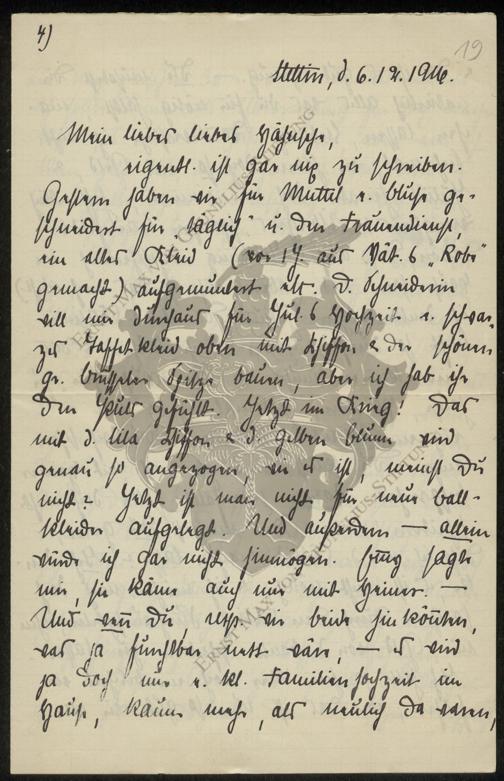 4)
19
Stettin, d. 6.12.1916.
Mein liebes liebes Hähnsche,
eigentl. ist gar nix zu schreiben.
Gestern haben wir für Muttel e. Bluse ge-
schneidert für „täglich“ u. den Frauendienst,
ein altes Kleid (vor 1 J. aus Vat.s „Robe“
gemacht) aufgemuntert etc. D. Schneiderin
will mir durchaus für Jul.s Hochzeit e. schwar-
zes Taffetkleid oben mit Chiffon & der schönen
gr. Brüsseler Spitze bauen, aber ich hab ihr
den Puls gefühlt. Jetzt im Krieg! Das
mit d. lila Chiffon & d. gelben Blumen wird
genau so angezogen, wie es ist, meinst Du
nicht? Jetzt ist man nicht für neue Ball-
kleider aufgelegt. Und außerdem — allein
würde ich gar nicht hinmögen. sagte
mir, sie käme auch nur mit Heiner. —
Und wenn Du, resp. wir beide hin könnten,
was ja furchtbar nett wäre, — es wird
ja doch nur e. kl. Familienhochzeit im
Hause, kaum mehr, als neulich da waren,
ERNST MAX VON GRUNELIUS-STIFTUNG
ERNST MAX VON GRUNELIUS-STIFTUNG